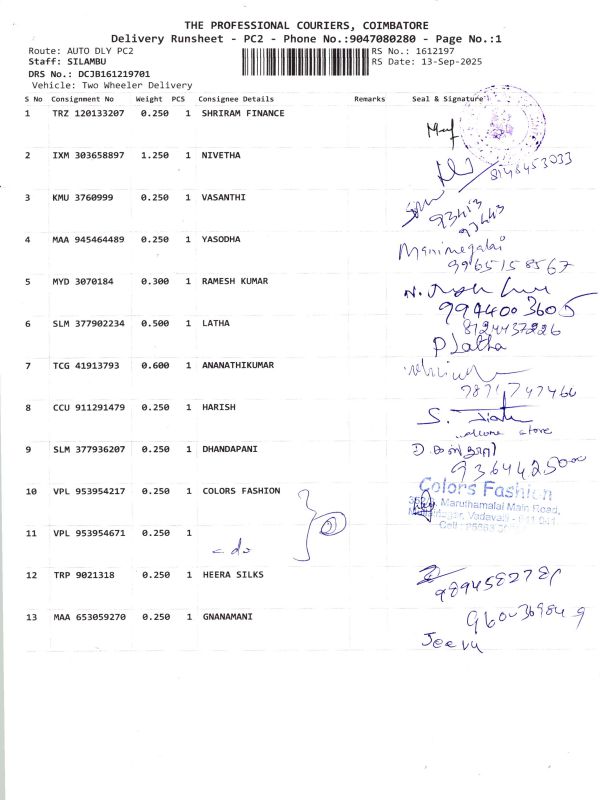 THE PROFESSIONAL COURIERS, COIMBATORE
Delivery Runsheet - PC2 - Phone No.:9047080280 - Page No.:1
Route: AUTO DLY PC2 RS No.: 1612197
Staff: SILAMBU RS Date: 13-Sep-2025
DRS No.: DCJB161219701
Vehicle: Two Wheeler Delivery
S No Consignment No Weight PCS Consignee Details Remarks Seal & Signature
1 TRZ 120133207 0.250 1 SHRIRAM FINANCE
2 IXM 303658897 1.250 1 NIVETHA 8148453033
3 KMU 3760999 0.250 1 VASANTHI
4 MAA 945464489 0.250 1 YASODHA Manimegalai
9965158567
5 MYD 3070184 0.300 1 RAMESH KUMAR
9944003605
6 SLM 377902234 0.500 1 LATHA 8124437226
P Latha
7 TCG 41913793 0.600 1 ANANATHIKUMAR
8 CCU 911291479 0.250 1 HARISH S.
store
9 SLM 377936207 0.250 1 DHANDAPANI
10 VPL 953954217 0.250 1 COLORS FASHION Colors Fashion
Maruthamalai Main Road,
Vadavalli
Cell
11 VPL 953954671 0.250 1
- do
12 TRP 9021318 0.250 1 HEERA SILKS
13 MAA 653059270 0.250 1 GNANAMANI
Jeeva